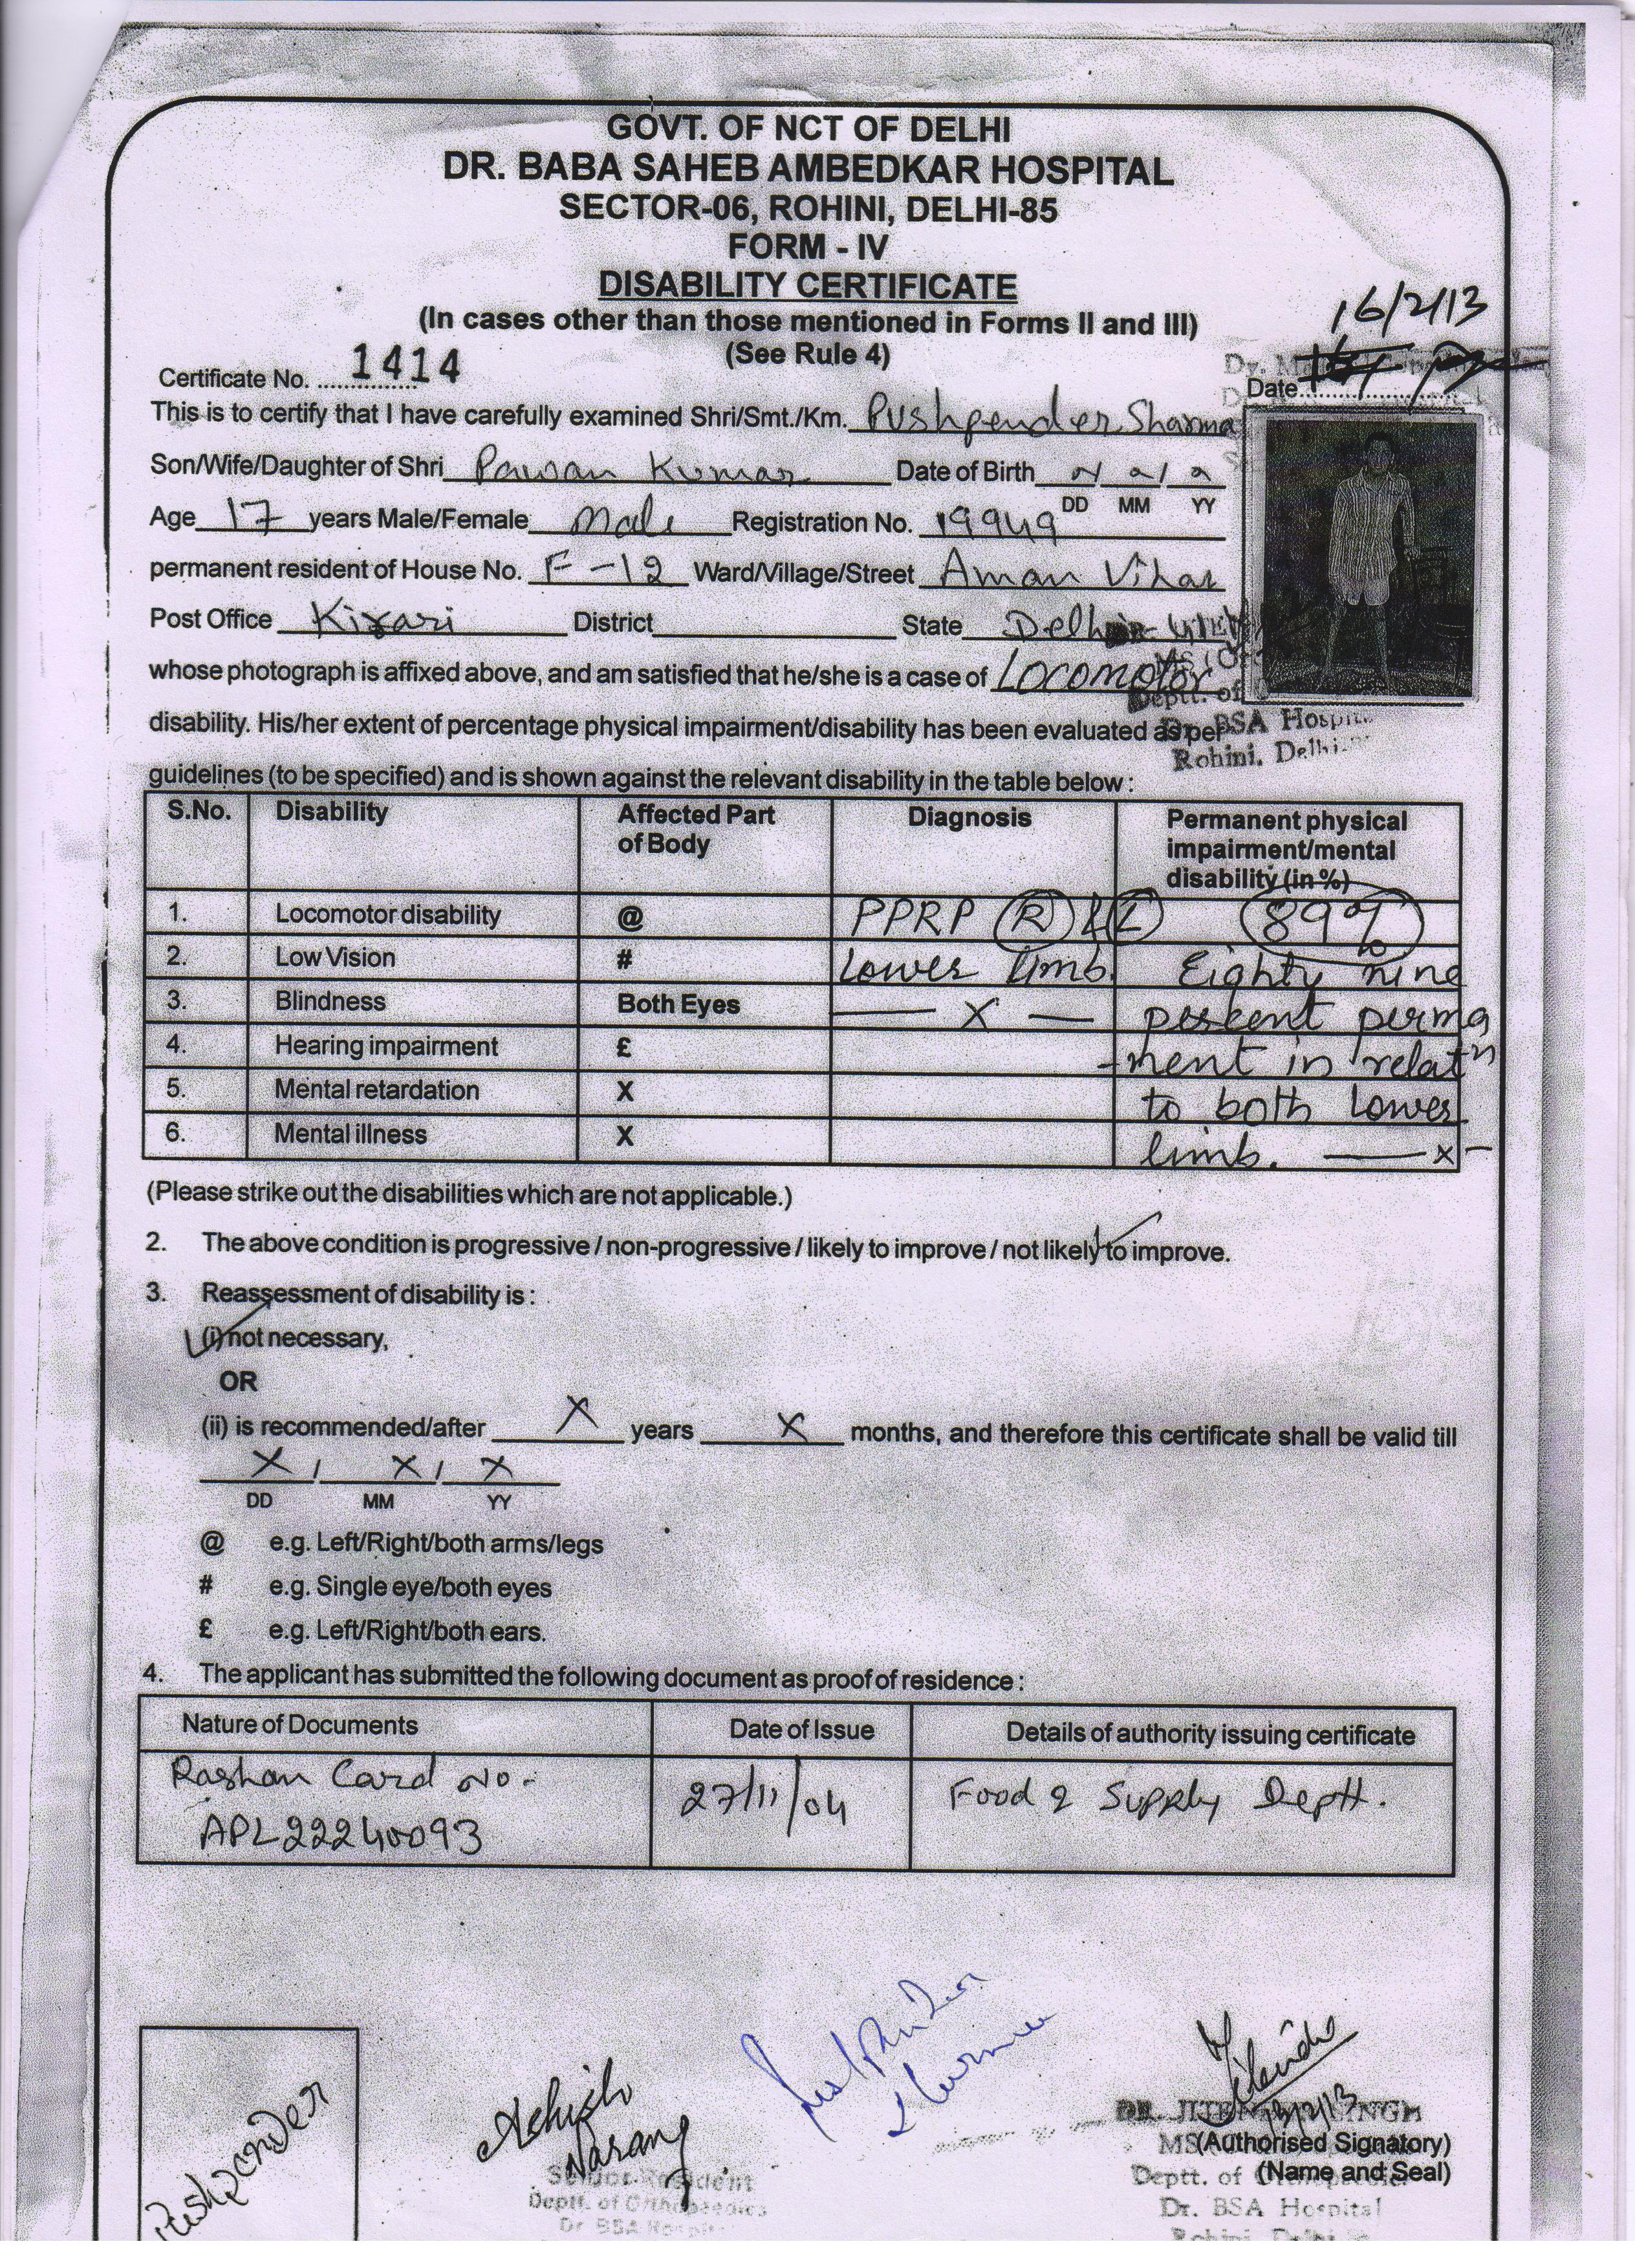 GOVT. OF NCT OF DELHI
DR. BABA SAHEB AMBEDKAR HOSPITAL
SECTOR-06, ROHINI, DELHI-85
FORM - IV
DISABILITY CERTIFICATE
(In cases other than those mentioned in Forms II and III)
(See Rule 4)
16/2/13
Certificate No. 1414
Date
This is to certify that I have carefully examined Shri/Smt./Km. Pushpender Sharma
Son/Wife/Daughter of Shri Pawan Kumar Date of Birth
DD MM YY
Age 17 years Male/Female Male Registration No. 19949
permanent resident of House No. F-12 Ward/Village/Street Aman Vihar
Post Office Kirari District State Delhi
whose photograph is affixed above, and am satisfied that he/she is a case of Locomotor
Deptt. of
disability. His/her extent of percentage physical impairment/disability has been evaluated as per
Dr. BSA Hospital
Rohini, Delhi
guidelines (to be specified) and is shown against the relevant disability in the table below :
S.No. Disability Affected Part of Body Diagnosis Permanent physical impairment/mental disability (in %)
1. Locomotor disability @ PPRP R & L 89%
2. Low Vision # Lower limb. Eighty nine
3. Blindness Both Eyes — X — percent perma
4. Hearing impairment £ -nent in relatn
5. Mental retardation X to both Lower
6. Mental illness X limb. — x –
(Please strike out the disabilities which are not applicable.)
2. The above condition is progressive / non-progressive / likely to improve / not likely to improve.
3. Reassessment of disability is :
(i) not necessary,
OR
(ii) is recommended/after X years X months, and therefore this certificate shall be valid till
X / X / X
DD MM YY
@ e.g. Left/Right/both arms/legs
# e.g. Single eye/both eyes
£ e.g. Left/Right/both ears.
4. The applicant has submitted the following document as proof of residence :
Nature of Documents Date of Issue Details of authority issuing certificate
Rashan Card No. 27/11/04 Food & Supply Deptt.
APL22240093
Pushpender
Ashish
Narang
Senior Resident
Deptt. of Orthopaedics
Dr. BSA Hospital
Pushpender
Sharma
DR. JITENDRA SINGH
MS (Authorised Signatory)
Deptt. of Orthopaedic (Name and Seal)
Dr. BSA Hospital
Rohini, Delhi